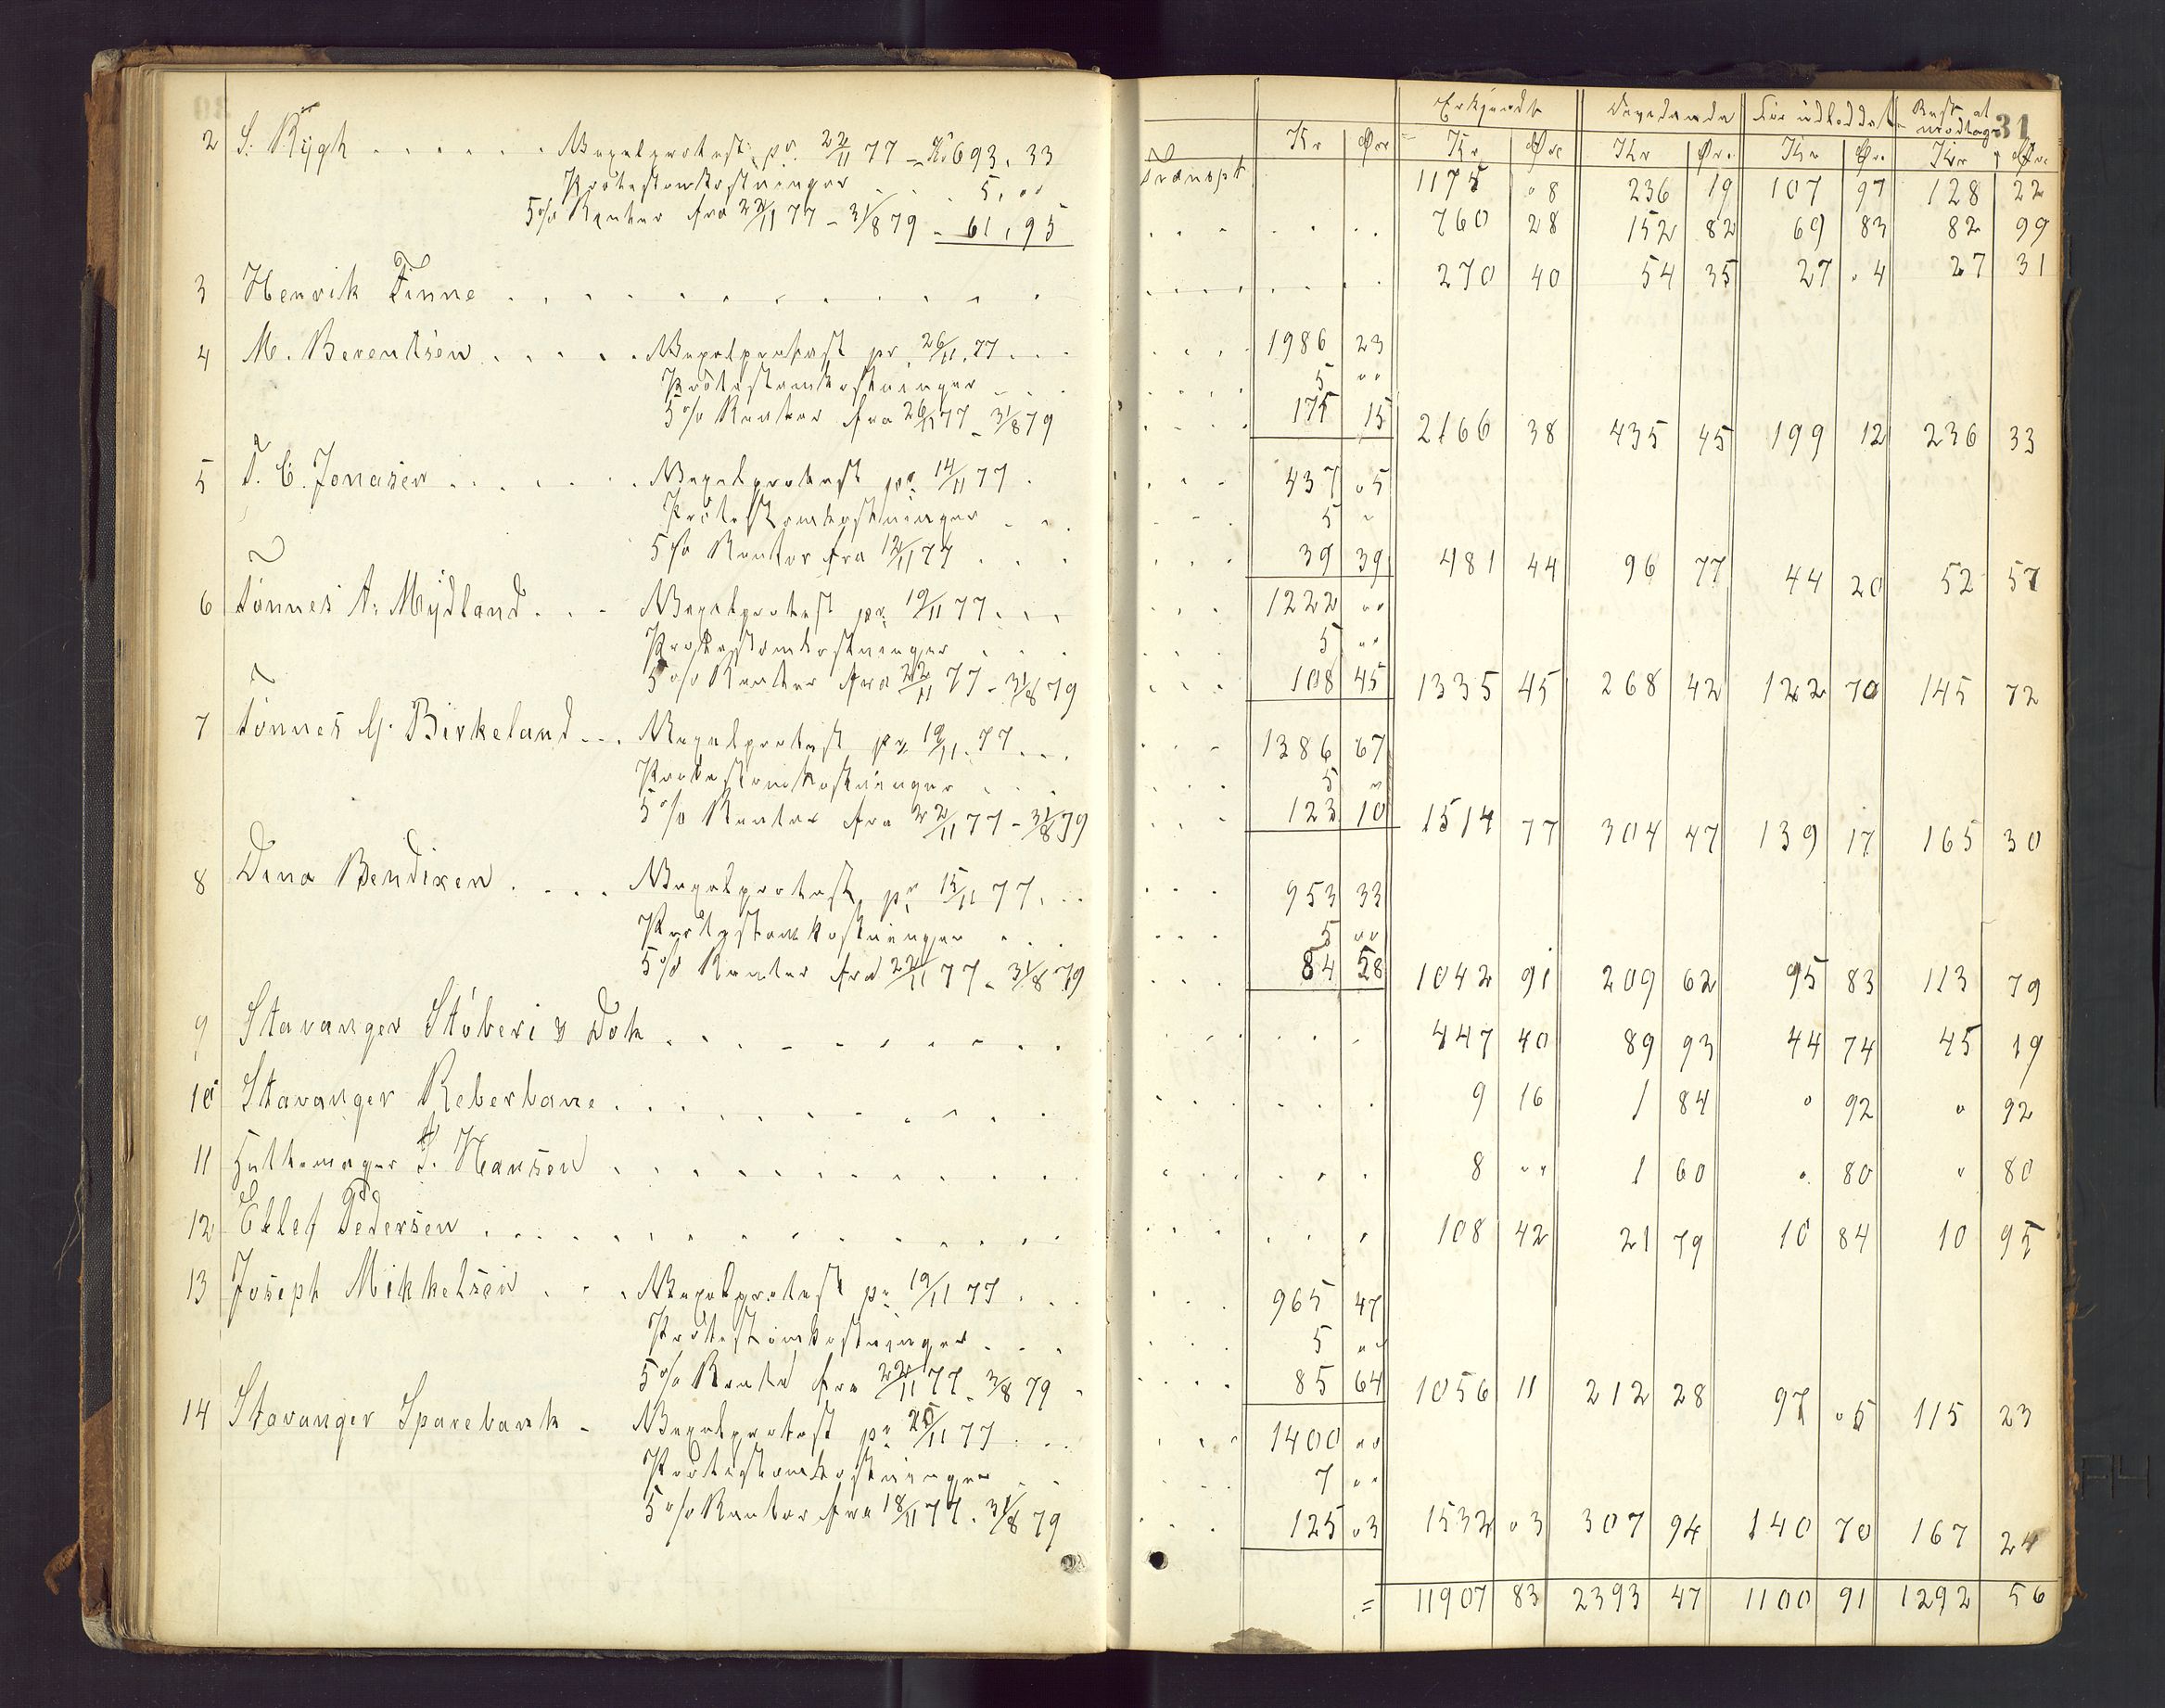 31
Erkjendt Dividende Før udloddet Rest at modtage
Kr Øre Kr Øre Kr Øre Kr Øre Kr Øre
Transpt 1175 08 236 19 107 97 128 22
2 S. Rygh . . . . . . Vexelprotest pr. 22/11 77 - Kr 693.33
Protestomkostninger . . 5, 00
5 % Renter fra 22/11 77 - 31/8 79 - 61,95 760 28 152 82 69 83 82 99
3 Henrik Finne . . . . 270 40 54 35 27 04 27 31
4 M. Berentsen . . . . . Vexelprotest pr. 26/11 77 . . . 1986 23
Protestomkostninger . . . 5 00
5 % Renter fra 26/11 77 - 31/8 79 175 15 2166 38 435 45 199 12 236 33
5 T. C. Jonasen . . . . . . Vexelprotest pr. 14/11 77 . 437 05
Protestomkostninger . . . 5 "
5 % Renter fra 14/11 77 . . . 39 39 481 44 96 77 44 20 52 57
6 Tönnes A. Mydland . . . Vexelprotest pr. 19/11 77 . . . 1222 00
Protestomkostninger . . . 5 00
5 % Renter fra 22/11 77 - 31/8 79 108 45 1335 45 268 42 122 70 145 72
7 Tönnes G. Birkeland . . . Vexelprotest pr. 19/11 77 . . . 1386 67
Protestomkostninger . . . 5 "
5 % Renter fra 22/11 77 - 31/8 79 123 10 1514 77 304 47 139 17 165 30
8 Dina Bendixen . . . . Vexelprotest pr. 15/11 77 . . . 953 33
Protestomkostninger . . . 5 00
5 % Renter fra 22/11 77 - 31/8 79 84 58 1042 91 209 62 95 83 113 79
9 Stavanger Stöberi & Dok . . . . 447 40 89 93 44 74 45 19
10 Stavanger Reberbane . . . . 9 16 1 84 " 92 " 92
11 Hattemager S. Hansen . . . . 8 00 1 60 " 80 " 80
12 Ellef Pedersen . . . . 108 42 21 79 10 84 10 95
13 Joseph Mikkelsen . . . Vexelprotest pr. 19/11 77 . . . 965 47
Protestomkostninger . . . 5 00
5 % Rente fra 22/11 77 - 31/8 79 85 64 1056 11 212 28 97 05 115 23
14 Stavanger Sparebank - Vexelprotest pr. 25/11 77 . . . 1400 00
Protestomkostninger . . . 7 00
5 % Renter fra 18/11 77 - 31/8 79 125 03 1532 03 307 94 140 70 167 24
= 11907 83 2393 47 1100 91 1292 56